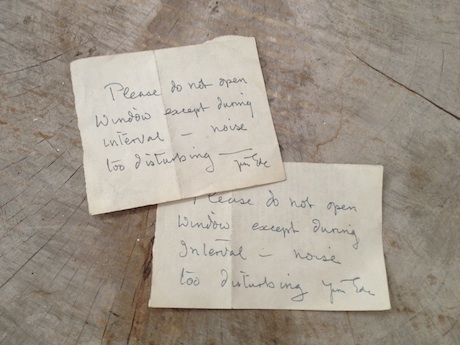 Please do not open
Window except during
interval — noise
too disturbing — Jim Ede
Please do not open
Window except during
Interval — noise
too disturbing Jim Ede